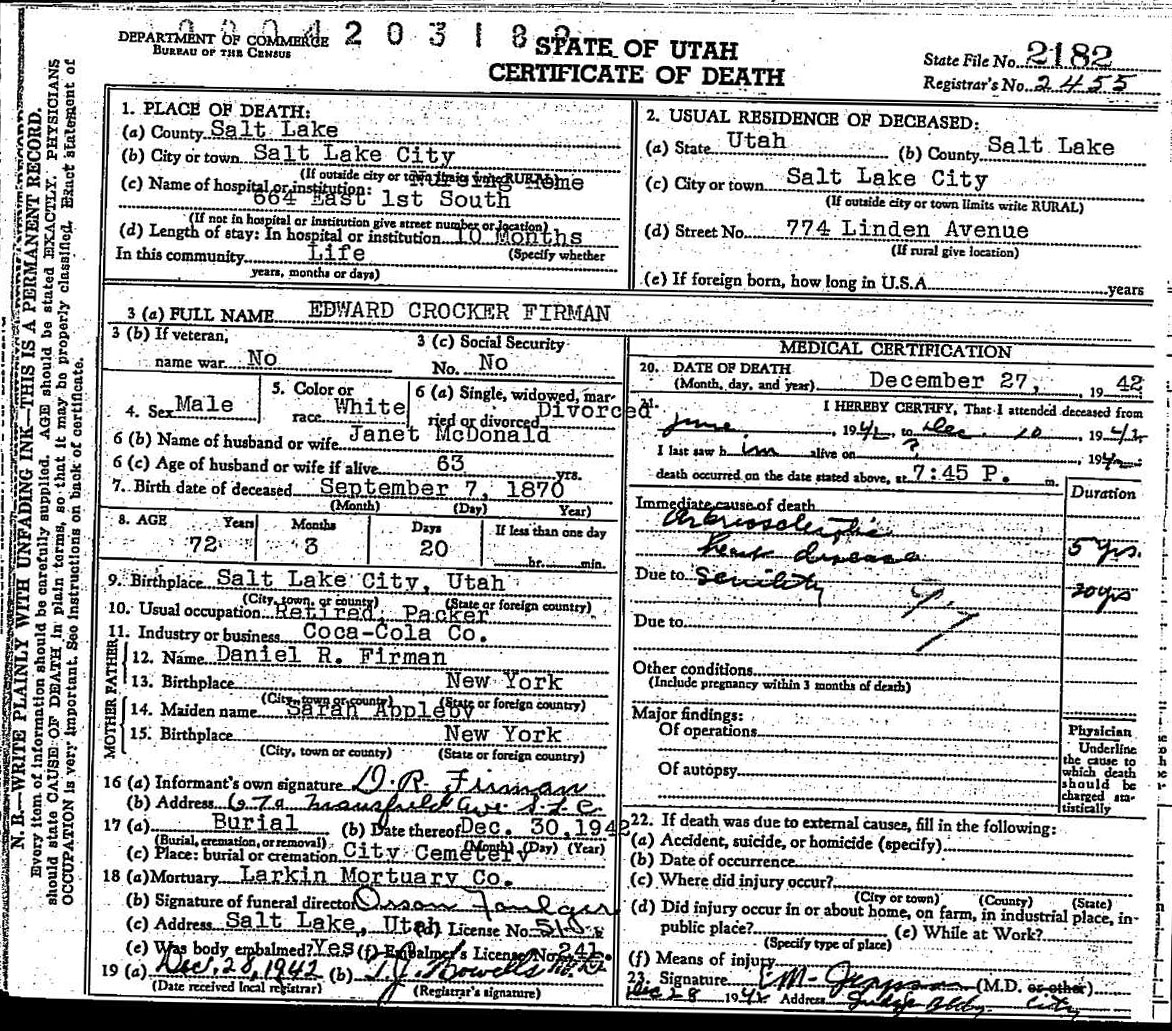 DEPARTMENT OF COMMERCE
BUREAU OF THE CENSUS
2 0 3 1 8
STATE OF UTAH
CERTIFICATE OF DEATH
State File No. 2182
Registrar's No. 2455
N. B.—WRITE PLAINLY WITH UNFADING INK—THIS IS A PERMANENT RECORD.
Every item of information should be carefully supplied. AGE should be stated EXACTLY. PHYSICIANS
should state CAUSE OF DEATH in plain terms, so that it may be properly classified. Exact statement of
OCCUPATION is very important. See instructions on back of certificate.
1. PLACE OF DEATH:
(a) County Salt Lake
(b) City or town Salt Lake City
(If outside city or town limits write RURAL)
Nursing Home
(c) Name of hospital or institution:
664 East 1st South
(If not in hospital or institution give street number or location)
(d) Length of stay: In hospital or institution 10 Months
In this community Life (Specify whether
years, months or days)
2. USUAL RESIDENCE OF DECEASED:
(a) State Utah (b) County Salt Lake
(c) City or town Salt Lake City
(If outside city or town limits write RURAL)
(d) Street No. 774 Linden Avenue
(If rural give location)
(e) If foreign born, how long in U.S.A. years
3 (a) FULL NAME EDWARD CROCKER FIRMAN
3 (b) If veteran,
name war No
3 (c) Social Security
No. No
4. Sex Male
5. Color or
race White
6 (a) Single, widowed, mar-
ried or divorced Divorced
6 (b) Name of husband or wife Janet McDonald
6 (c) Age of husband or wife if alive 63 yrs.
7. Birth date of deceased September 7, 1870
(Month) (Day) Year)
8. AGE Years Months Days If less than one day
72 3 20 hr. min.
9. Birthplace Salt Lake City, Utah
(City, town, or county) (State or foreign country)
10. Usual occupation Retired, Packer
11. Industry or business Coca-Cola Co.
FATHER
12. Name Daniel R. Firman
13. Birthplace New York
(City, town or county) (State or foreign country)
MOTHER
14. Maiden name Sarah Appleby
15. Birthplace New York
(City, town or county) (State or foreign country)
16 (a) Informant's own signature D. R. Firman
(b) Address Mansfield Ave S.L.C.
17 (a) Burial (b) Date thereof Dec. 30, 1942
(Burial, cremation, or removal) (Month) (Day) (Year)
(c) Place: burial or cremation City Cemetery
18 (a) Mortuary Larkin Mortuary Co.
(b) Signature of funeral director Orson Foulger
(c) Address Salt Lake, Utah (d) License No.
(e) Was body embalmed? Yes (f) Embalmer's License No. 241.
19 (a) Dec. 28, 1942 (b) T. J. Howells
(Date received local registrar) (Registrar's signature)
MEDICAL CERTIFICATION
20. DATE OF DEATH
(Month, day, and year) December 27, 19 42
21. I HEREBY CERTIFY, That I attended deceased from
June, 1942 to Dec. 10, 1942
I last saw h im alive on ?, 1942
death occurred on the date stated above, at 7:45 P. m.
Duration
Immediate cause of death
Arteriosclerotic
heart disease 5 yrs.
Due to Senility 20 yrs
Due to
Other conditions
(Include pregnancy within 3 months of death)
Major findings:
Of operations
Of autopsy
Physician
Underline
the cause to
which death
should be
charged sta-
tistically
22. If death was due to external causes, fill in the following:
(a) Accident, suicide, or homicide (specify)
(b) Date of occurrence
(c) Where did injury occur?
(City or town) (County) (State)
(d) Did injury occur in or about home, on farm, in industrial place, in-
public place? (e) While at Work?
(Specify type of place)
(f) Means of injury
23. Signature (M.D. or other)
Dec 28 1942 Address Judge Bldg. City